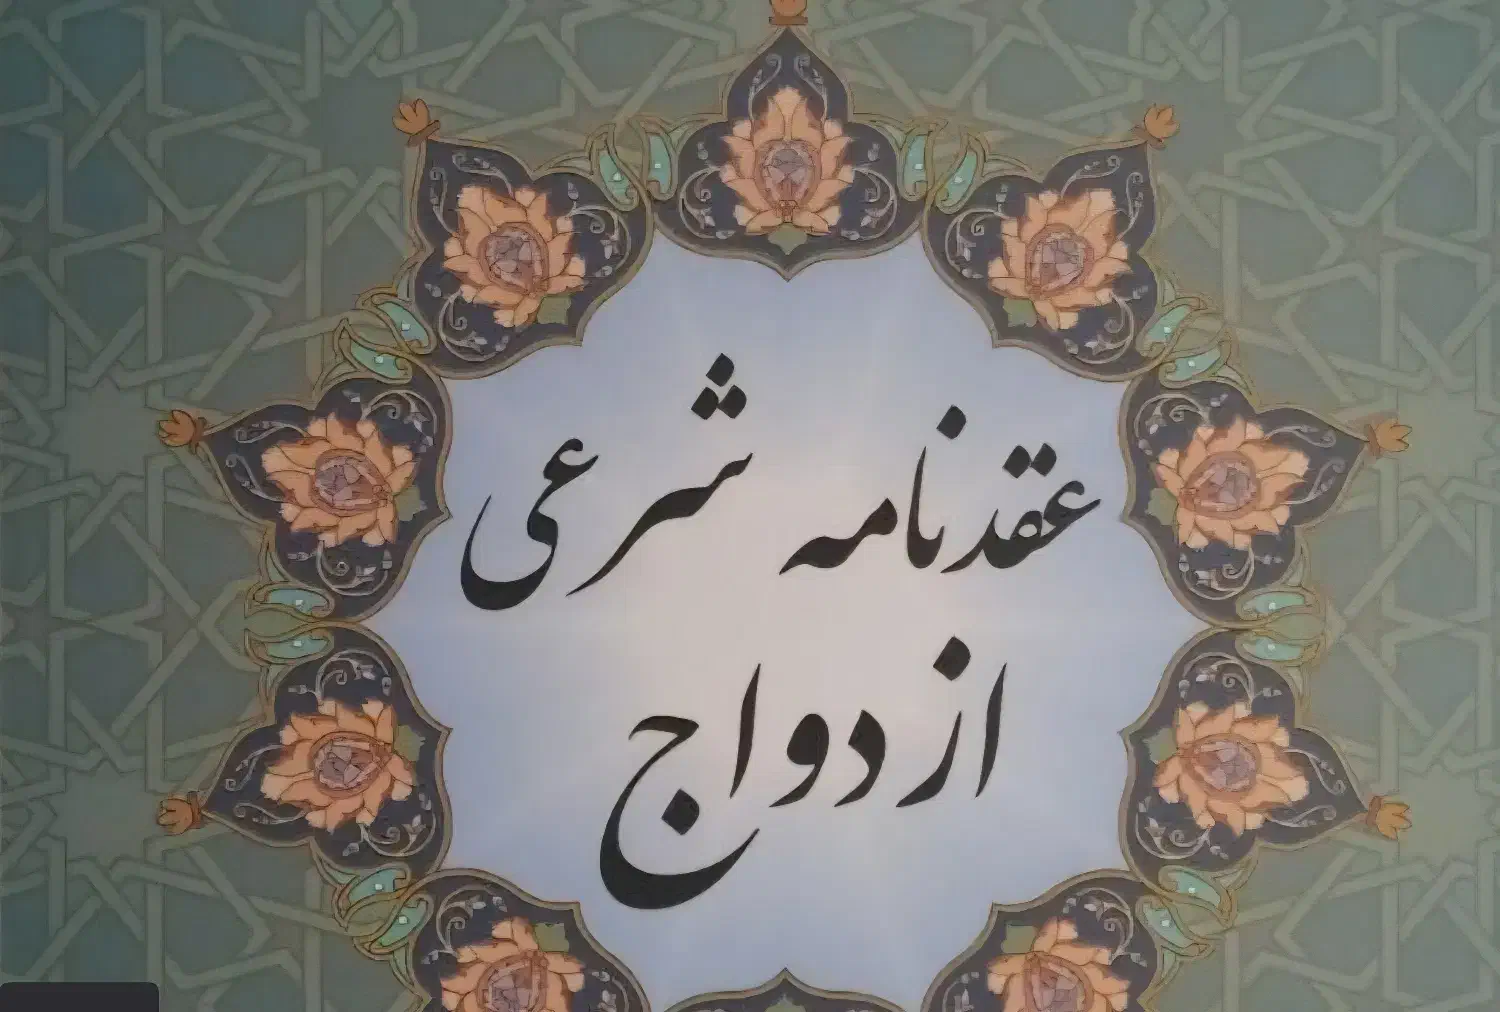 عقدنامه شرعی
ازدواج